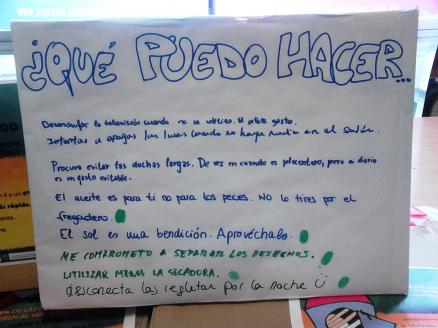 ¿QUÉ PUEDO HACER...
Desenchufar la televisión cuando no se utilice. El piloto gasta.
apagar las luces cuando no haya nadie en el salón.
Procura evitar las duchas largas. De vez en cuando es placentero, pero a diario
es un gasto evitable.
El aceite es para ti no para los peces. No lo tires por el
fregadero.
El sol es una bendición. Aprovéchalo.
ME COMPROMETO A SEPARAR LOS DESECHOS.
UTILIZAR MENOS LA SECADORA.
desconecta las regletas por la noche